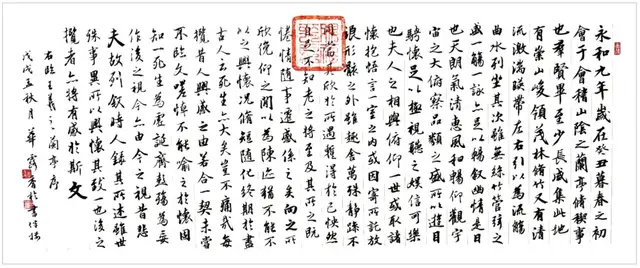 永和九年歲在癸丑暮春之初
會于會稽山陰之蘭亭脩稧事
也群賢畢至少長咸集此地
有崇山峻領茂林脩竹又有清
流激湍暎帶左右引以為流觴
曲水列坐其次雖無絲竹管弦之
盛一觴一詠亦足以暢敘幽情是日
也天朗氣清惠風和暢仰觀宇
宙之大俯察品類之盛所以遊目
騁懷足以極視聽之娛信可樂
也夫人之相與俯仰一世或取諸
懷抱悟言一室之內或因寄所託放
浪形骸之外雖趣舍萬殊靜躁不
同當其欣於所遇暫得於己怏然
自足不知老之將至及其所之既
倦情隨事遷感慨係之矣向之所
欣俛仰之閒以為陳迹猶不能不
以之興懷況脩短隨化終期於盡
古人云死生亦大矣豈不痛哉每
攬昔人興感之由若合一契未嘗
不臨文嗟悼不能喻之於懷固
知一死生為虛誕齊彭殤為妄
作後之視今亦由今之視昔悲
夫故列敘時人錄其所述雖世
殊事異所以興懷其致一也後之
攬者亦將有感於斯文
右臨王羲之蘭亭序
戊戌孟秋月華